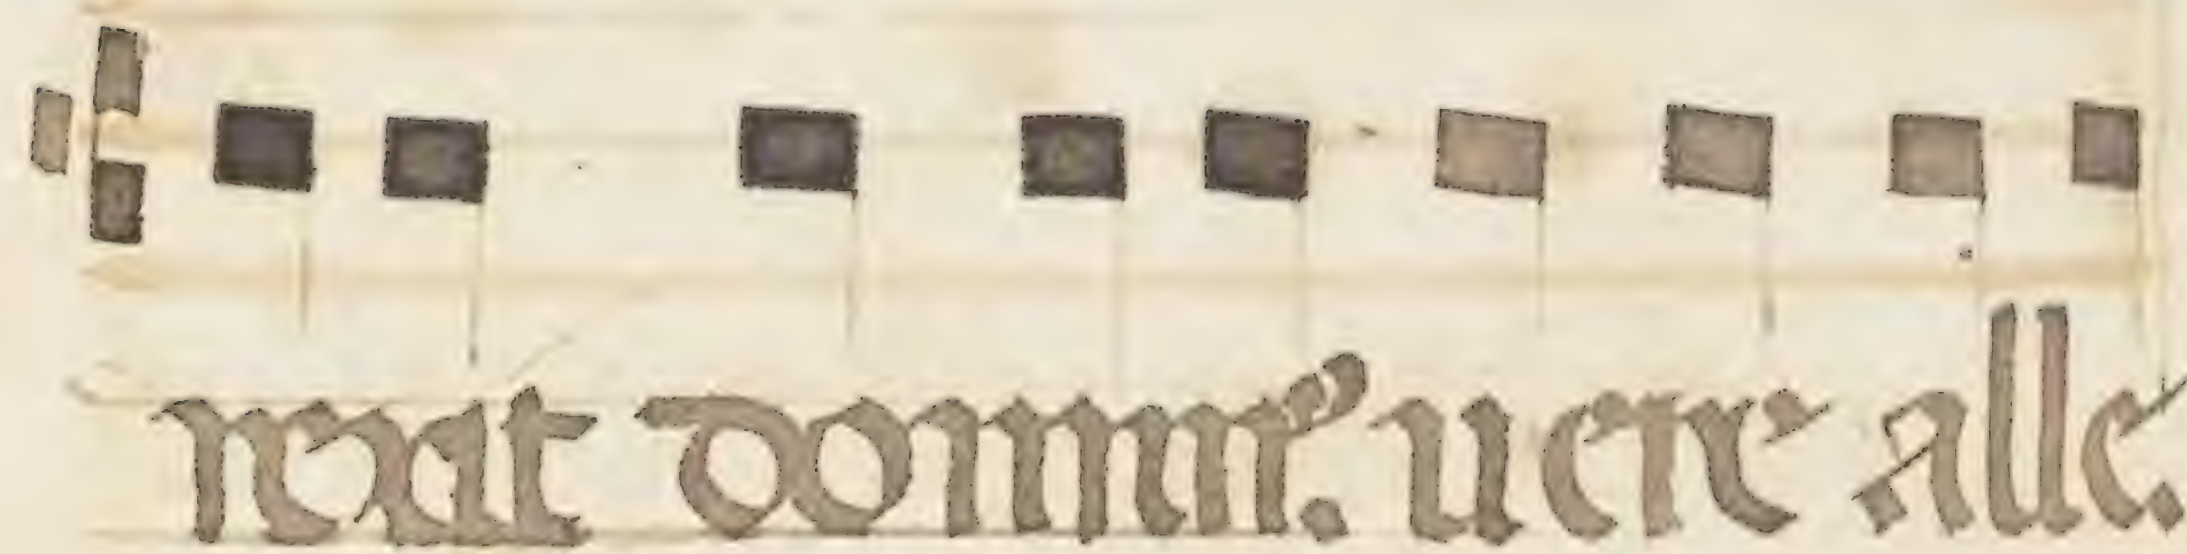 rexit dominꝰ. uere alle.